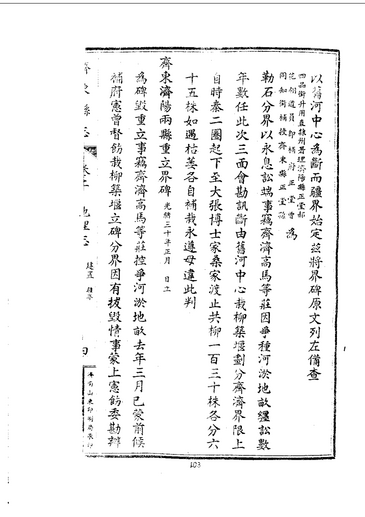 以舊河中心為斷而疆界始定茲將界碑原文列左備查
四品銜升用直隸州署理濟陽縣正堂
花翎道員即補府正堂曹 為
同知銜補授齊東縣正堂
勒石分界以永息訟端事竊齊濟高馬等莊因爭種河淤地畝纏訟數
年數任此次三面會勘訊斷由舊河中心栽柳築堰劃分齊濟界限上
自時秦二圈起下至大張博士家桑家渡止共柳一百三十株各分六
十五株如遇枯萎各自補栽永遵毋違此判
齊東濟陽兩縣重立界碑 光緒三十年正月 日立
為碑毀重立事竊齊濟高馬等莊控爭河淤地畝去年三月已蒙前候
補府憲曾督飭栽柳築堰立碑分界因有拔毀情事蒙上憲飭委勘辦
齊東縣志 卷二 地理志 建置 四
濟南山東印刷局承印
103